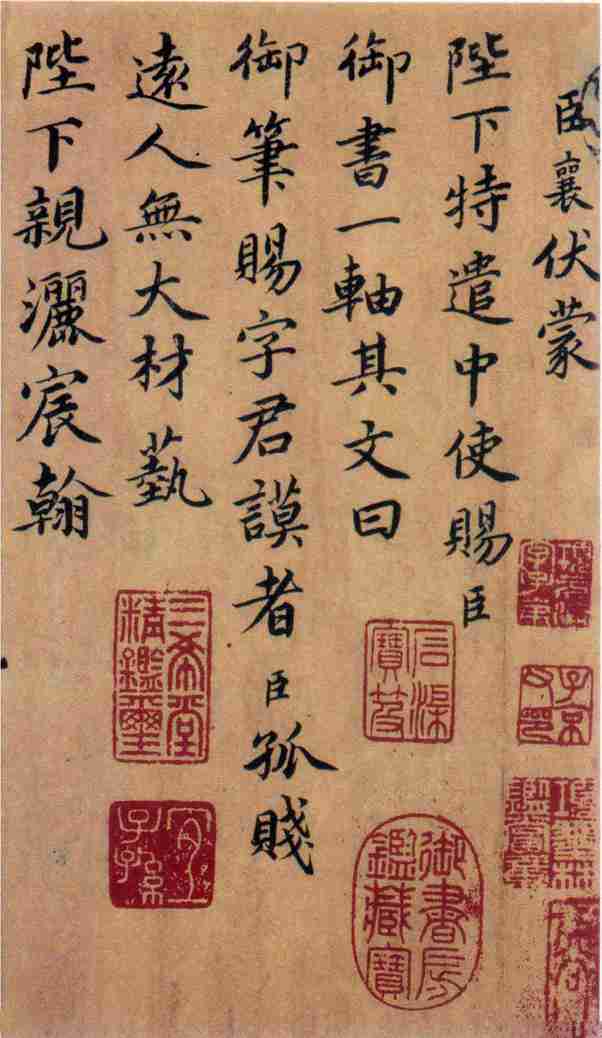 臣襄伏蒙
陛下特遣中使賜臣
御書一軸其文曰
御筆賜字君謨者臣孤賤
遠人無大材藝
陛下親灑宸翰
子京
御書房鑑藏寶
三希堂精鑑璽
宜子孫